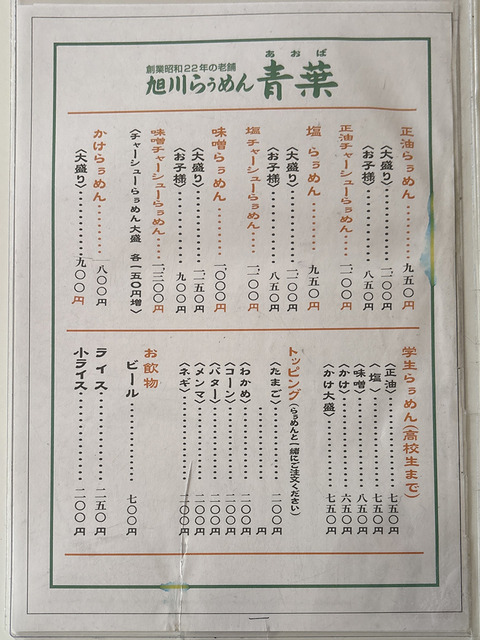 創業昭和22年の老舗
旭川らぅめん 青葉
あおば
正油らぅめん………九五〇円
〈大盛り〉………一、一〇〇円
〈お子様〉………八五〇円
正油チャーシューらぅめん…
塩らぅめん………九五〇円
〈大盛り〉………一、一〇〇円
〈お子様〉………八五〇円
塩チャーシューらぅめん…
味噌らぅめん………一、〇〇〇円
〈大盛り〉………一、一五〇円
〈お子様〉………九〇〇円
味噌チャーシューらぅめん…
〈チャーシューらぅめん大盛 各一五〇円増〉
かけらぅめん………八〇〇円
〈大盛り〉………九〇〇円
学生らぅめん(高校生まで)
〈正油〉………七五〇円
〈塩〉………七五〇円
〈味噌〉………八五〇円
〈かけ〉………六五〇円
〈かけ大盛〉………七五〇円
トッピング(らぅめんと一緒にご注文ください)
〈たまご〉………一〇〇円
………円
〈わかめ〉………二〇〇円
〈コーン〉………二〇〇円
〈バター〉………二〇〇円
〈メンマ〉………二〇〇円
〈ネギ〉………二〇〇円
お飲物
ビール………七〇〇円
ライス………二五〇円
小ライス………二〇〇円